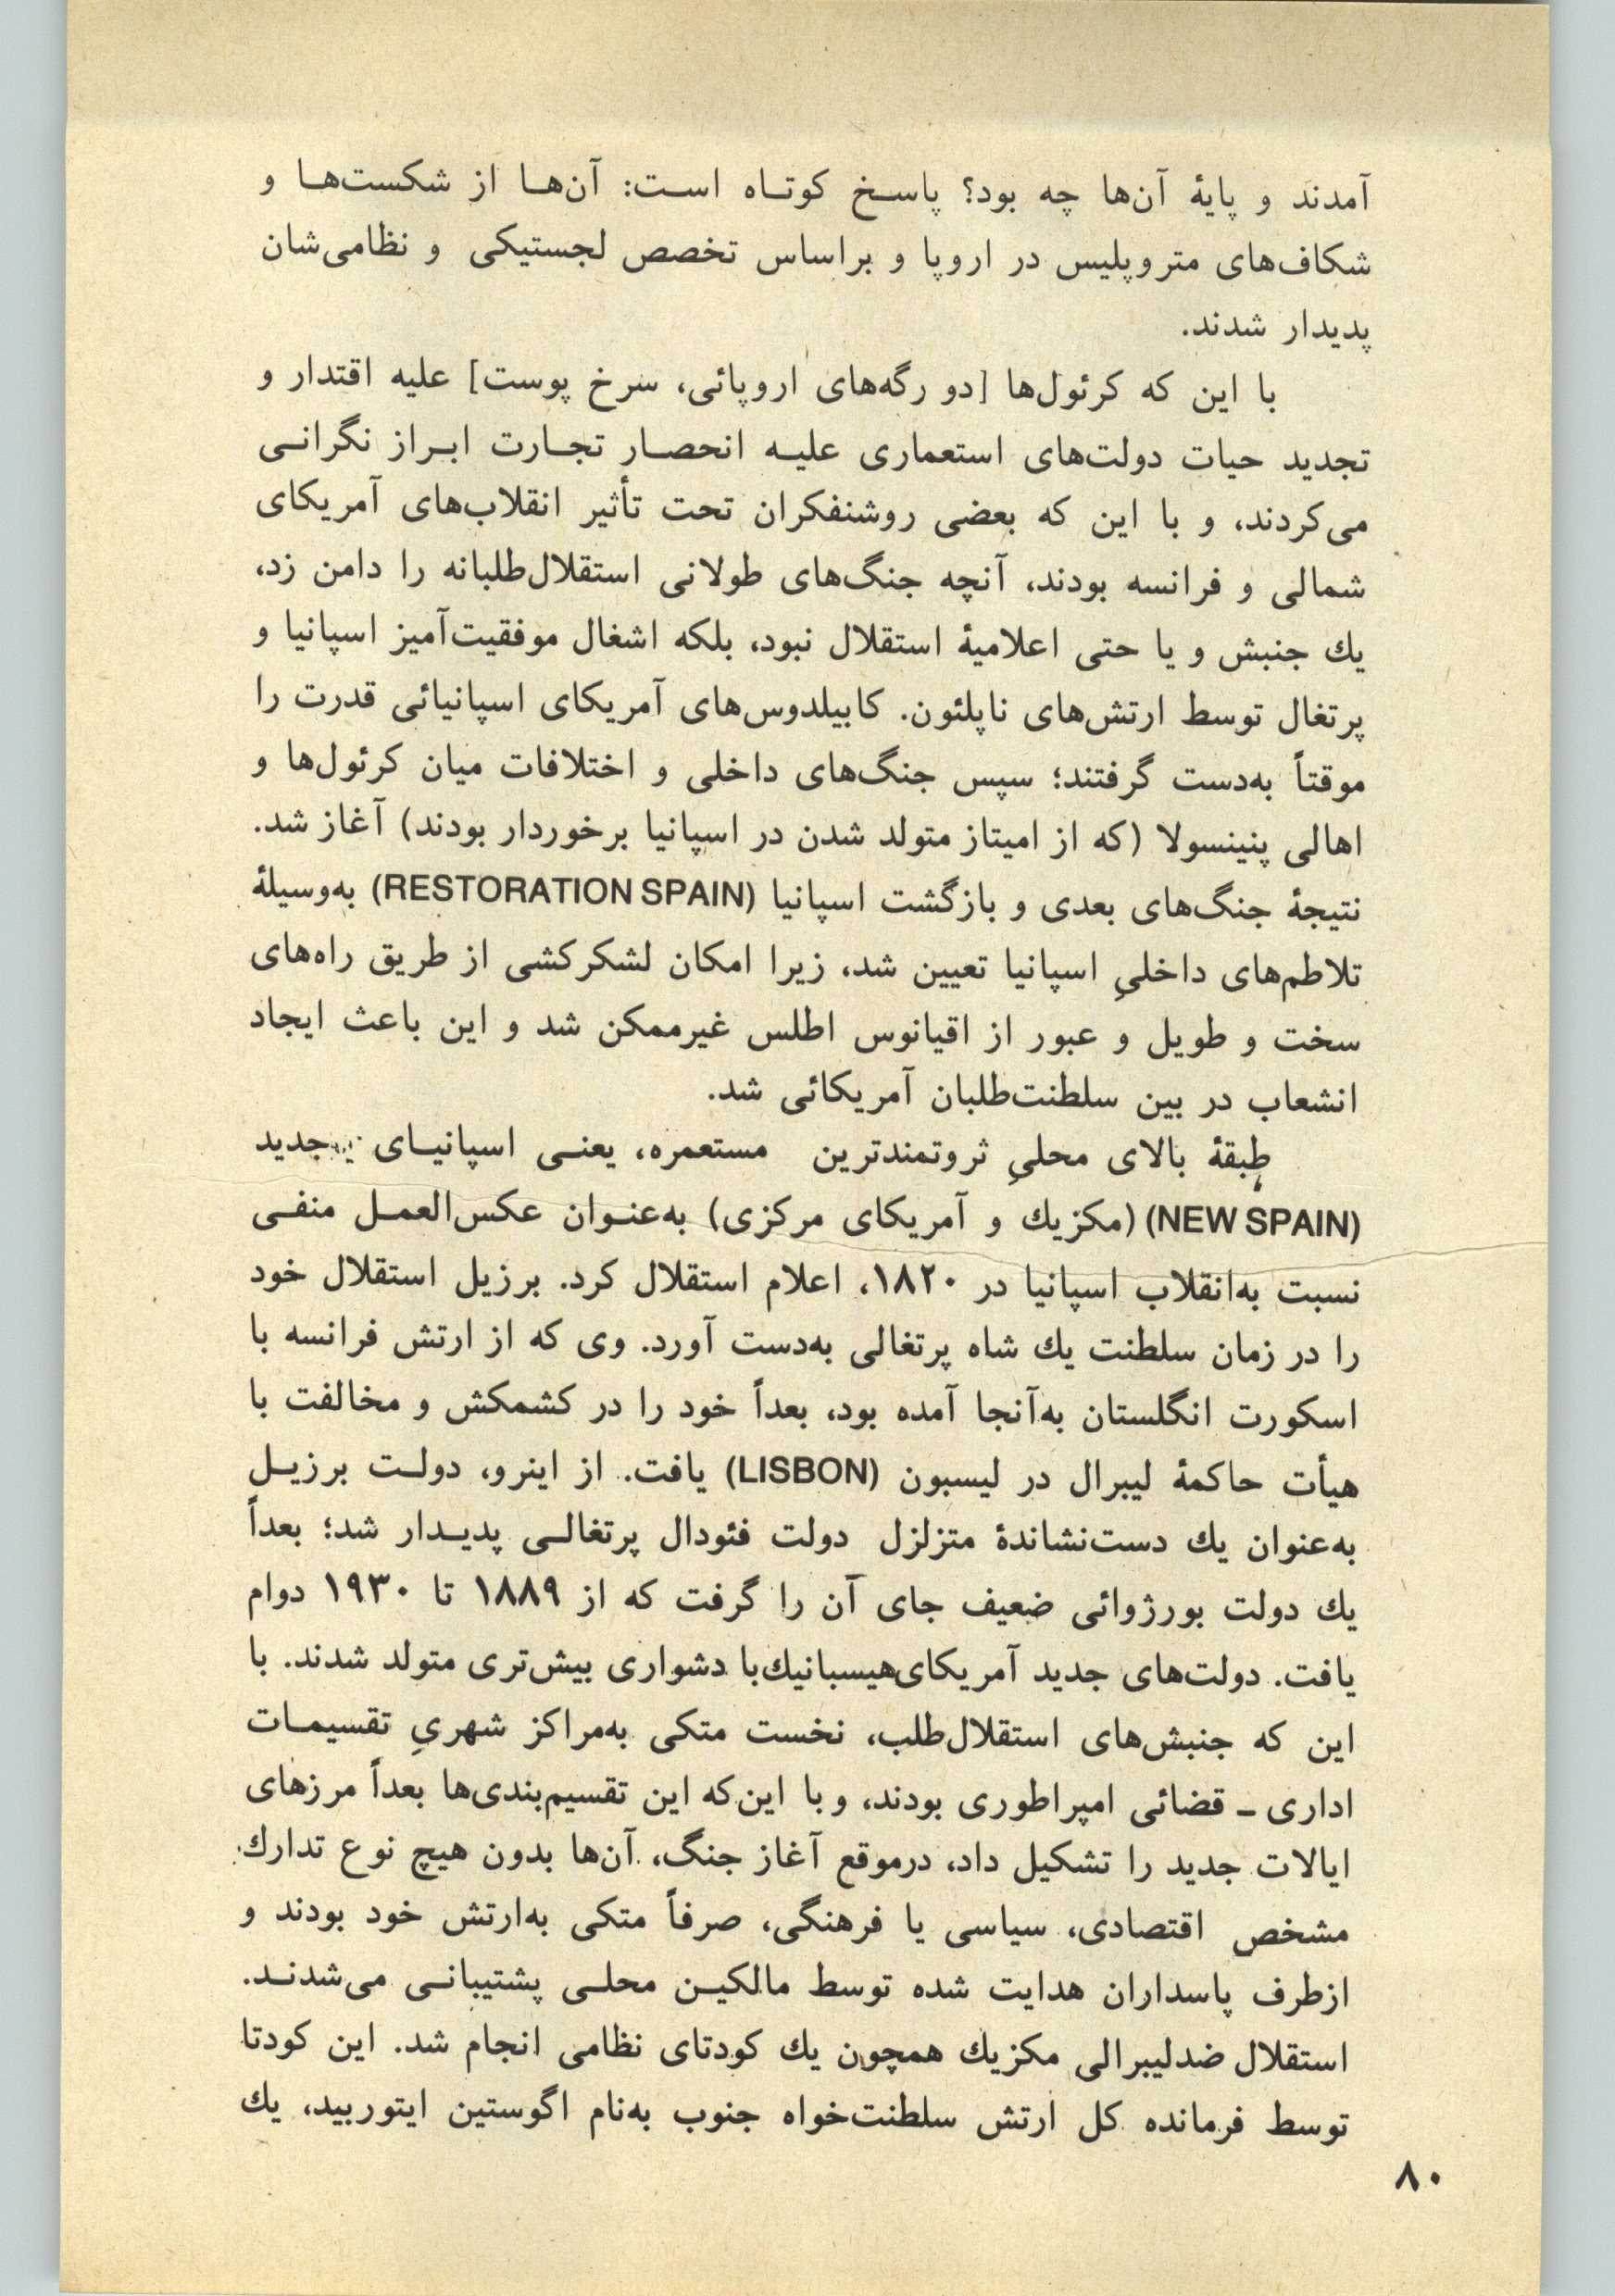 آمدند و پایهٔ آن‌ها چه بود؟ پاسخ کوتاه است: آن‌ها از شکست‌ها و
شکاف‌های متروپلیس در اروپا و براساس تخصص لجستیکی و نظامی‌شان
پدیدار شدند.
با این که کرئول‌ها [دو رگه‌های اروپائی، سرخ پوست] علیه اقتدار و
تجدید حیات دولت‌های استعماری علیه انحصار تجارت ابراز نگرانی
می‌کردند، و با این که بعضی روشنفکران تحت تأثیر انقلاب‌های آمریکای
شمالی و فرانسه بودند، آنچه جنگ‌های طولانی استقلال‌طلبانه را دامن زد،
یك جنبش و یا حتی اعلامیهٔ استقلال نبود، بلکه اشغال موفقیت‌آمیز اسپانیا و
پرتغال توسط ارتش‌های ناپلئون. کابیلدوس‌های آمریکای اسپانیائی قدرت را
موقتاً به‌دست گرفتند؛ سپس جنگ‌های داخلی و اختلافات میان کرئول‌ها و
اهالی پنینسولا (که از امیتاز متولد شدن در اسپانیا برخوردار بودند) آغاز شد.
نتیجهٔ جنگ‌های بعدی و بازگشت اسپانیا (RESTORATION SPAIN) به‌وسیلهٔ
تلاطم‌های داخلیِ اسپانیا تعیین شد، زیرا امکان لشکرکشی از طریق راه‌های
سخت و طویل و عبور از اقیانوس اطلس غیرممکن شد و این باعث ایجاد
انشعاب در بین سلطنت‌طلبان آمریکائی شد.
طبقهٔ بالای محلیِ ثروتمندترین مستعمره، یعنی اسپانیای جدید
(NEW SPAIN) (مکزیك و آمریکای مرکزی) به‌عنوان عکس‌العمل منفی
نسبت به‌انقلاب اسپانیا در ۱۸۲۰، اعلام استقلال کرد. برزیل استقلال خود
را در زمان سلطنت یك شاه پرتغالی به‌دست آورد. وی که از ارتش فرانسه با
اسکورت انگلستان به‌آنجا آمده بود، بعداً خود را در کشمکش و مخالفت با
هیأت حاکمهٔ لیبرال در لیسبون (LISBON) یافت. از اینرو، دولت برزیل
به‌عنوان یك دست‌نشاندهٔ متزلزل دولت فئودال پرتغالی پدیدار شد؛ بعداً
یك دولت بورژوائی ضعیف جای آن را گرفت که از ۱۸۸۹ تا ۱۹۳۰ دوام
یافت. دولت‌های جدید آمریکای‌هیسبانیك‌با دشواری بیش‌تری متولد شدند. با
این که جنبش‌های استقلال‌طلب، نخست متکی به‌مراکز شهریِ تقسیمات
اداری ـ قضائی امپراطوری بودند، و با این‌که این تقسیم‌بندی‌ها بعداً مرزهای
ایالات جدید را تشکیل داد، درموقع آغاز جنگ، آن‌ها بدون هیچ نوع تدارك
مشخص اقتصادی، سیاسی یا فرهنگی، صرفاً متکی به‌ارتش خود بودند و
ازطرف پاسداران هدایت شده توسط مالکین محلی پشتیبانی می‌شدند.
استقلال ضدلیبرالی مکزیك همچون یك کودتای نظامی انجام شد. این کودتا
توسط فرمانده کل ارتش سلطنت‌خواه جنوب به‌نام اگوستین ایتوربید، یك
۸۰